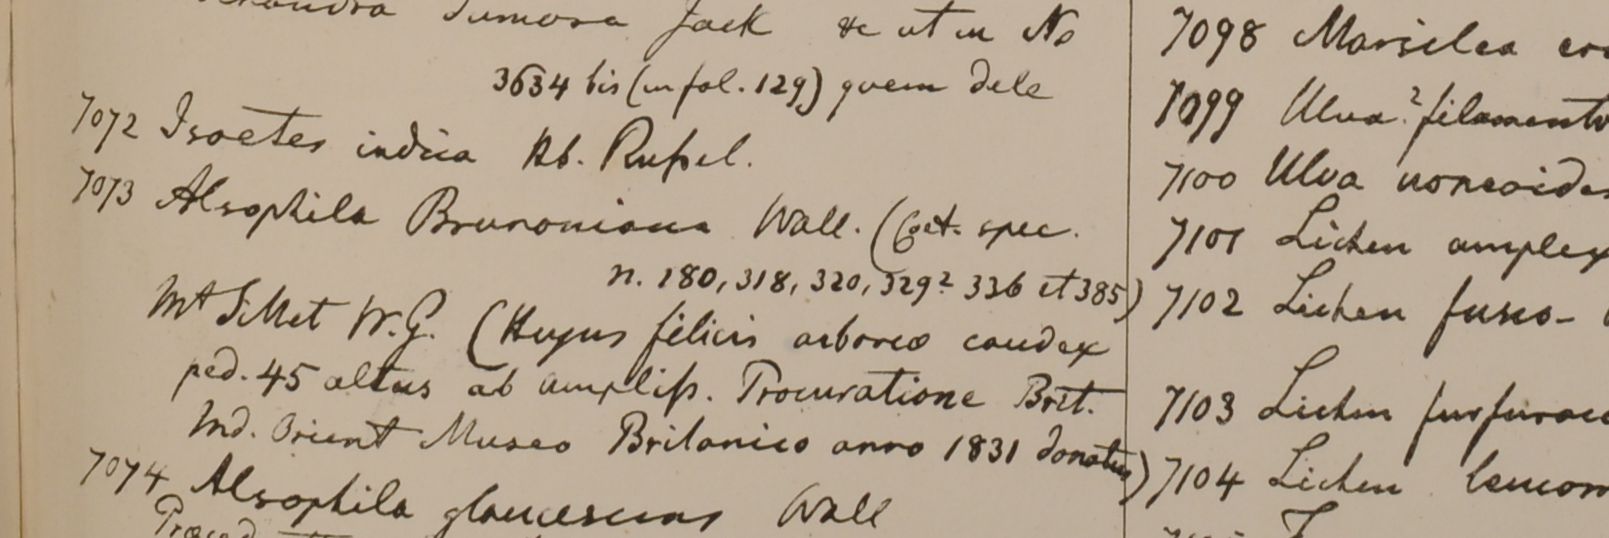 Jack &c ut in No
3634 bis (in fol. 129) quem dele
7072 Isoetes indica Hb. Rußel.
7073 Alsophila Brunoniana Wall. (Cat. spec.
n. 180, 318, 320, 329? 336 et 385)
Mt Sillet W.G. (Hujus filicis arboreo caudex
ped. 45 altus ab ampliß. Procuratione Brit.
Ind. Orient Museo Britanico anno 1831 donatus)
7074 Alsophila glaucescens Wall
7098 Marsilea
7099 Ulva? filamento
7100 Ulva
7101 Lichen amplex
7102 Lichen fusco-
7103 Lichen furfurac
7104 Lichen leucom